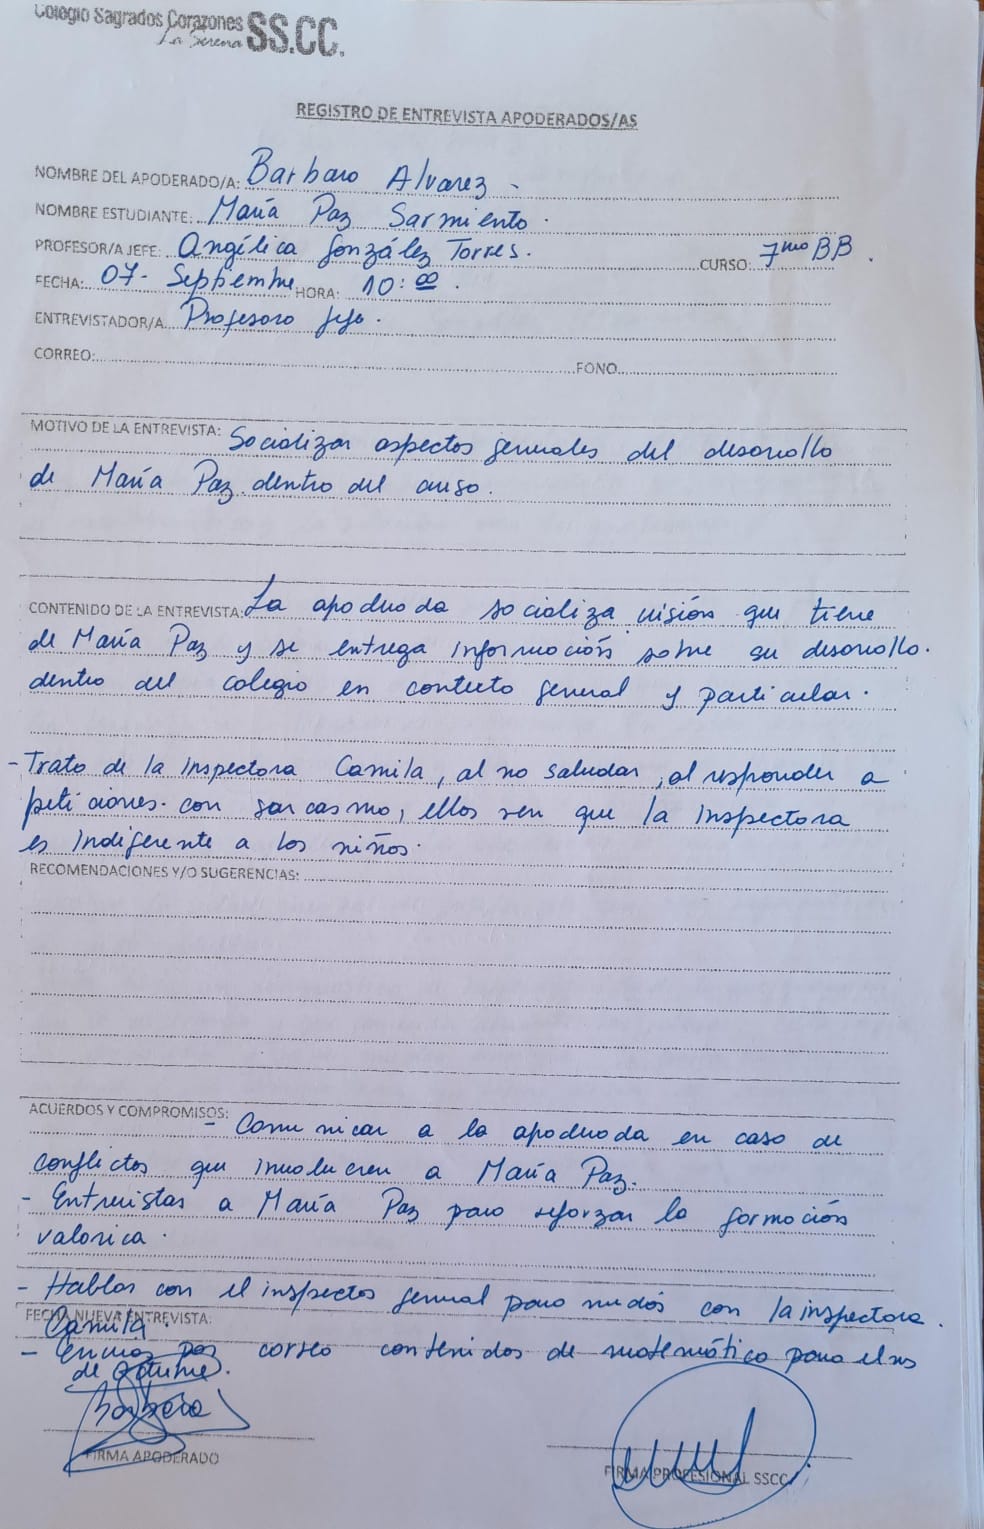 Colegio Sagrados Corazones
La Serena SS.CC.
REGISTRO DE ENTREVISTA APODERADOS/AS
NOMBRE DEL APODERADO/A: Barbara Alvarez -
NOMBRE ESTUDIANTE: María Paz Sarmiento.
PROFESOR/A JEFE: Angélica González Torres. CURSO: 7mo BB.
FECHA: 07- Septiembre HORA: 10:00.
ENTREVISTADOR/A Profesora jefe.
CORREO: FONO
MOTIVO DE LA ENTREVISTA: Socializar aspectos generales del desarrollo
de María Paz dentro del curso.
CONTENIDO DE LA ENTREVISTA: La apoderada socializa visión que tiene
de María Paz y se entrega información sobre su desarrollo.
dentro del colegio en contexto general y particular.
- Trato de la inspectora Camila, al no saludar, al responder a
peticiones con sarcasmo, ellos ven que la inspectora
es indiferente a los niños.
RECOMENDACIONES Y/O SUGERENCIAS:
ACUERDOS Y COMPROMISOS: - Comunicar a la apoderada en caso de
conflictos que involucren a María Paz.
- Entrevistar a María Paz para reforzar la formación
valorica.
- Hablar con el inspector general para con la inspectora.
FECHA NUEVA ENTREVISTA:
Camila
- Enviar por correo contenidos de matemática para el mes
de Octubre.
Barbara
FIRMA APODERADO
FIRMA PROFESIONAL SSCC